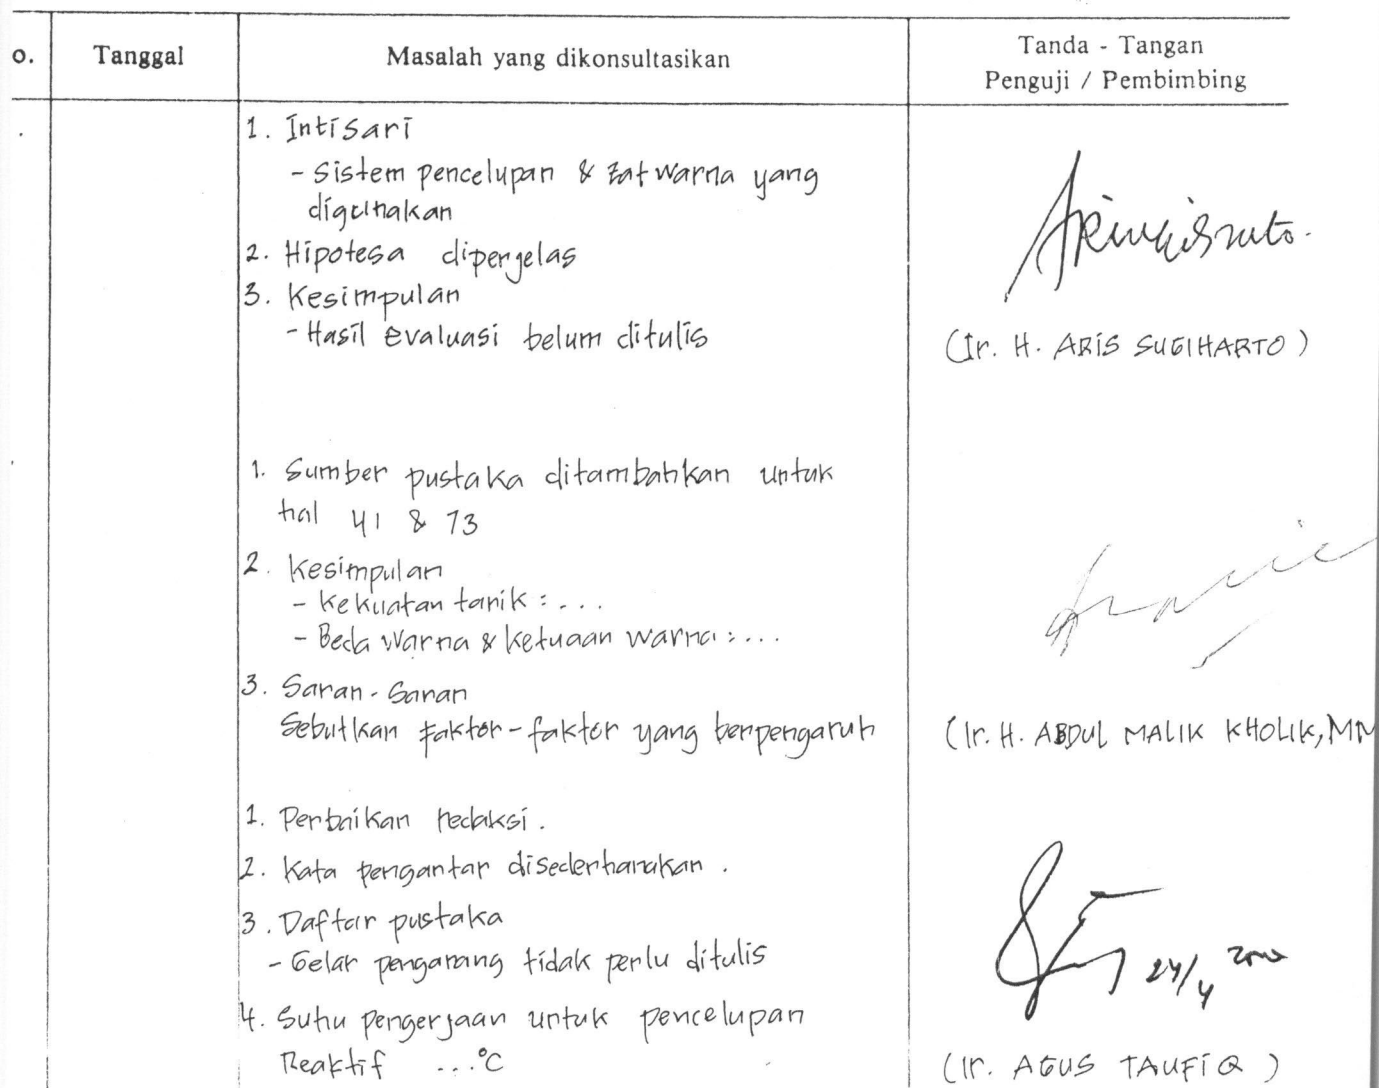 o.
Tanggal
Masalah yang dikonsultasikan
Tanda - Tangan
Penguji / Pembimbing
1. Intisari
- Sistem pencelupan & zat warna yang
digunakan
2. Hipotesa diperjelas
3. Kesimpulan
- Hasil evaluasi belum ditulis
(Ir. H. ARIS SUGIHARTO)
1. Sumber pustaka ditambahkan untuk
hal 41 & 73
2. Kesimpulan
- Kekuatan tarik : ...
- Beda warna & ketuaan warna : ...
3. Saran-Saran
Sebutkan faktor-faktor yang berpengaruh
(Ir. H. ABDUL MALIK KHOLIK, MM
1. Perbaikan redaksi.
2. Kata pengantar disederhanakan.
3. Daftar pustaka
- Gelar pengarang tidak perlu ditulis
24/4 2000
4. Suhu pengerjaan untuk pencelupan
Reaktif ...°C
(Ir. AGUS TAUFIQ)